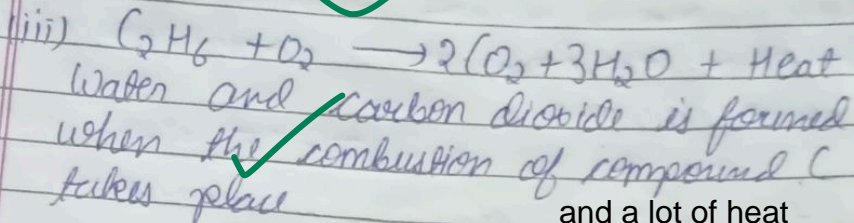 (iii) C2H6 + O2 ⟶ 2CO2 + 3H2O + Heat
Water and carbon dioxide is formed
when the combustion of compound C
takes place
and a lot of heat